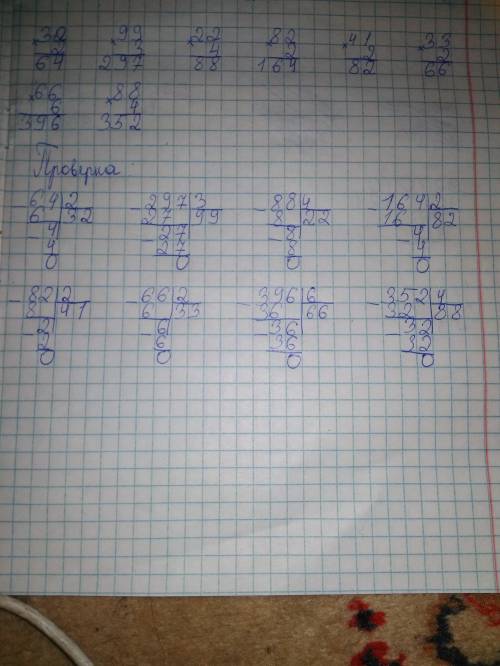 ×32 ×99 ×22 ×82 ×41 ×33
2 3 4 2 2 2
64 297 88 164 82 66
×66 ×88
6 4
396 352
Проверка
-64|2 -297|3 -88|4 -164|2
6 |32 27 |99 8 |22 16 |82
-4 -27 -8 -4
4 27 8 4
0 0 0 0
-82|2 -66|2 -396|6 -352|4
8 |41 6 |33 36 |66 32 |88
-2 -6 -36 -32
2 6 36 32
0 0 0 0